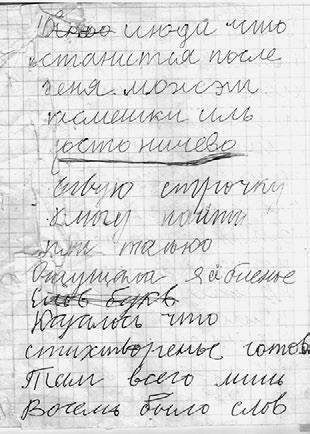 иногда что
станится после
меня можэт
камешки иль
росто ничево
ервую строчку
смогу найти
только
Ощущала я биенье
слов букв
Казалось что
стихотворенье готов
Там всего лишь
Восемь было слов